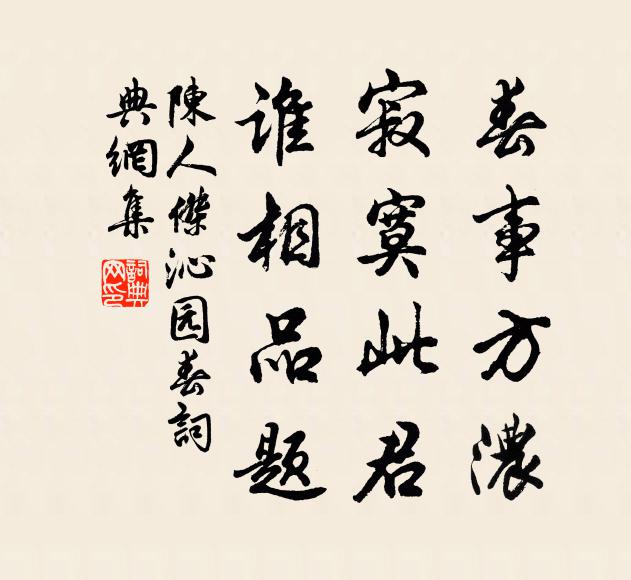 春事方濃
寂寞此君
誰相品题
陳人傑沁园春詞
典網集
詞典网印